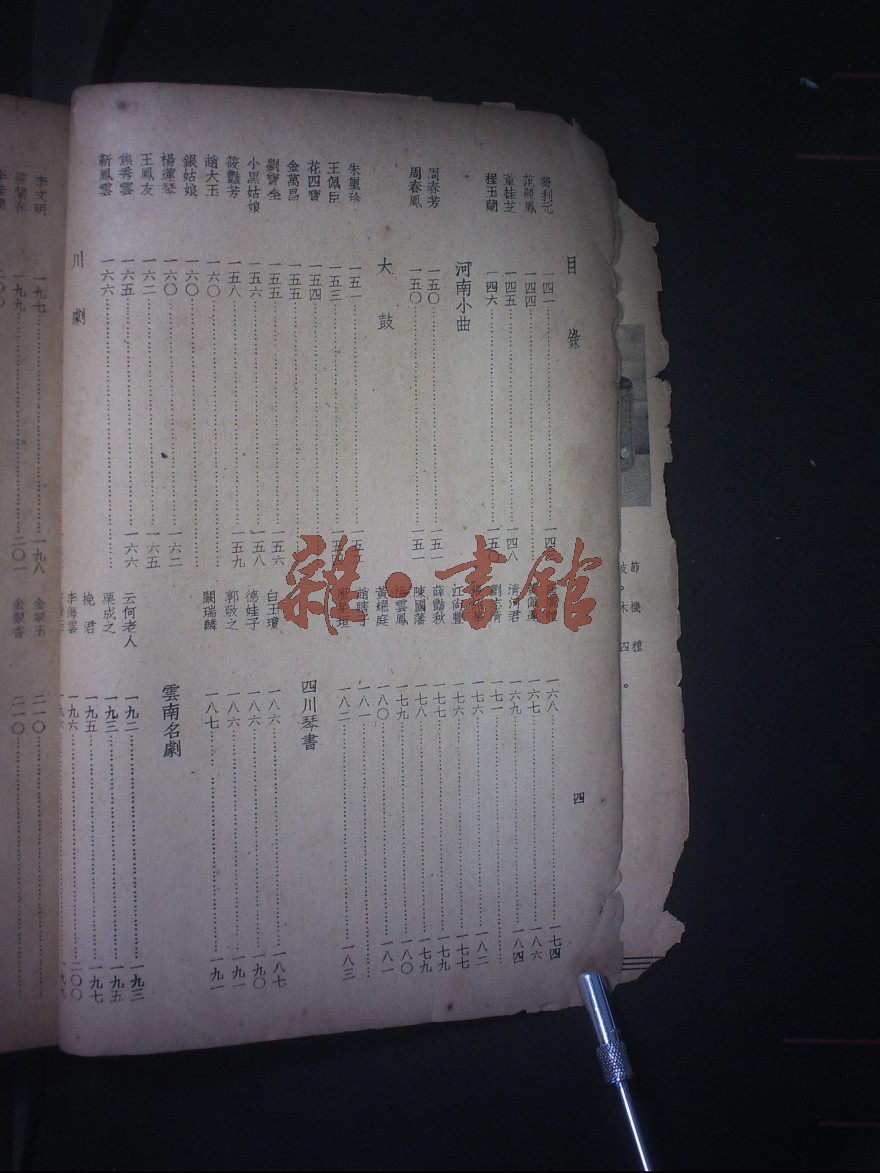 目錄
四
一四二
范麗鳳 一四四
董桂芝 一四五 一四八
程玉蘭 一四六 一五〇
河南小曲
周春芳 一五〇 一五一
周春鳳 一五〇 一五一
大鼓
朱璽珍 一五一
王佩臣 一五三
花四寶 一五四
金萬昌 一五五
劉寶全 一五五 一五六
小黑姑娘 一五六 一五八
筱艷芳 一五八 一五九
趙大玉 一六〇
銀姑娘 一六〇
楊蓮琴 一六〇 一六二
王鳳友 一六二 一六五
焦秀雲 一六五 一六六
靳鳳雲 一六六
川劇
一六八 一七四
一六七 一八六
清河君 一六九 一八四
一七一
一七六 一八二
江尚豐 一七六 一七七
薛艷秋 一七七 一七九
陳國藩 一七八 一七九
雲鳳 一七九 一八〇
黃耀庭 一八〇 一八一
趙瞎子 一八一
一八二 一八三
四川琴書
白玉瓊 一八六 一八七
德娃子 一八六 一九〇
郭敬之 一八六 一九一
闞瑞麟 一八七 一九一
雲南名劇
云何老人 一九二 一九三
栗成之 一九三 一九五
挽君 一九五 一九七
李海雲 一九六 二〇〇
李文明 一九七 一九八
筱蘭春 一九九 二〇一
金翠玉 二一〇
金翠香 二一〇
雜·書館